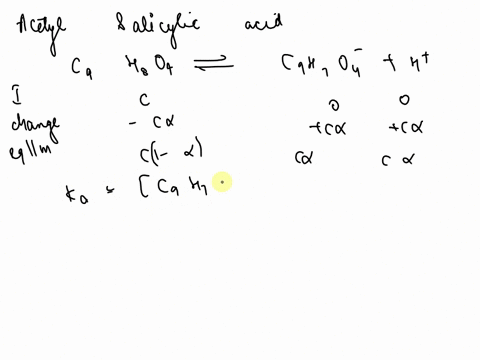 Acetyl Salicylic acid
C₉ H₈ O₄ ⇌ C₉H₇ O₄⁻ + H⁺
I C 0 0
change - Cα +Cα +Cα
eqllm C(1- α) Cα C α
Ka = [ C₉ H₇